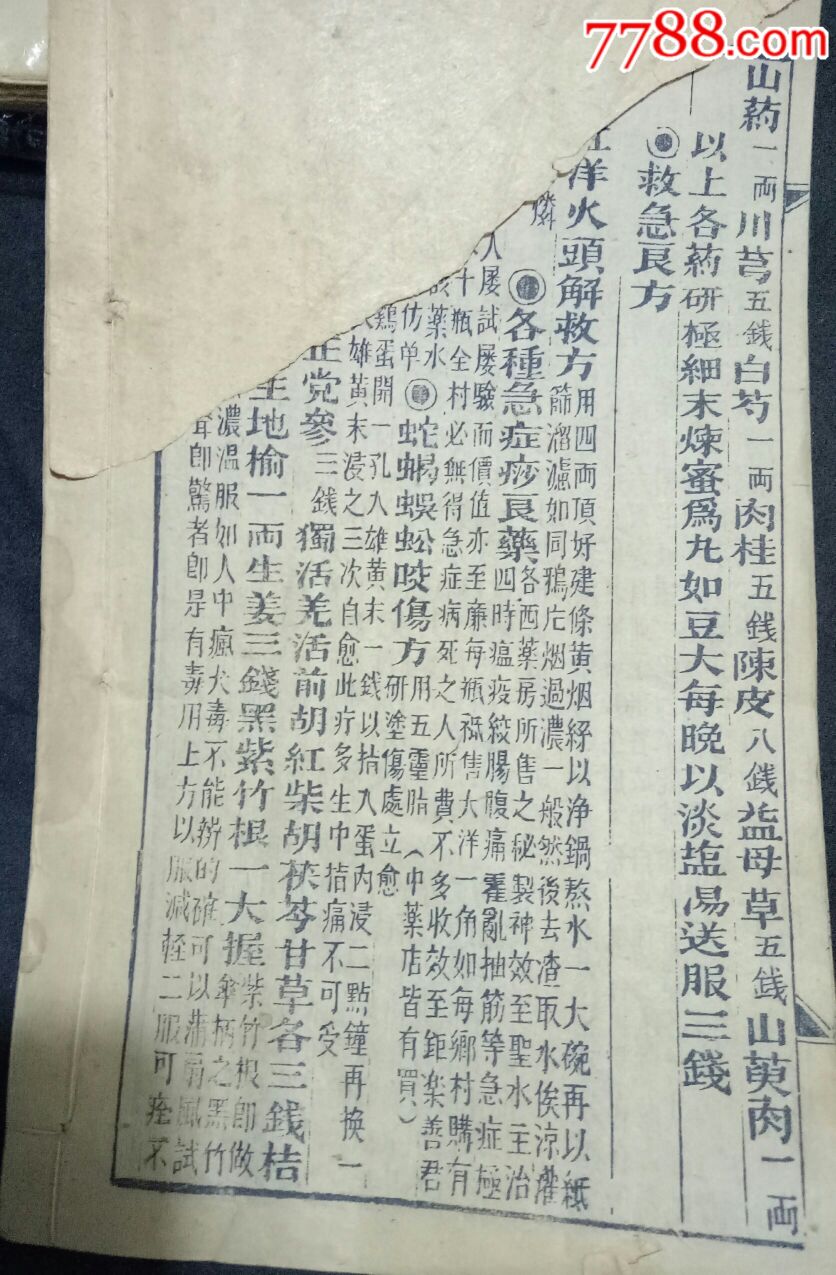 7788.com
山葯一両川芎五銭白芍一両肉桂五銭陳皮八銭益母草五銭山萸肉一両
以上各葯研極細末煉蜜爲丸如豆大每晚以淡塩湯送服三錢
◉救急良方
洋火頭解救方
用四両頂好建條黄烟以净鍋熬水一大碗再以紙
篩溜濾如同鴉片烟過濃一般然後去渣取水俟凉灌
燐
◉各種急症痧良藥
各西藥房所售之秘製神效至聖水主治
四時瘟疫絞腸腹痛霍亂抽筋等急症極
人屡試屡驗而價值亦至廉每瓶祗售大洋一角如每鄉村購有
十瓶全村必無得急症病死之人所費不多收效至鉅楽善君
該藥水
仿单
◉蛇蝎蜈蚣咬傷方
用五靈脂（中藥店皆有買）
研塗傷處立愈
鶏蛋開一孔入雄黄末一錢以指入蛋内浸二點鐘再换一
雄黄末浸之三次自愈此疔多生中指痛不可受
正党參三銭獨活羌活前胡紅柴胡茯苓甘草各三銭桔
生地榆一両生姜三錢黑紫竹根一大握
紫竹根即做
傘柄之黑竹
濃温服如人中瘋犬毒不能辨的確可以蒲扇風試
即驚者即是有毒用上方以服减輕二服可痊不